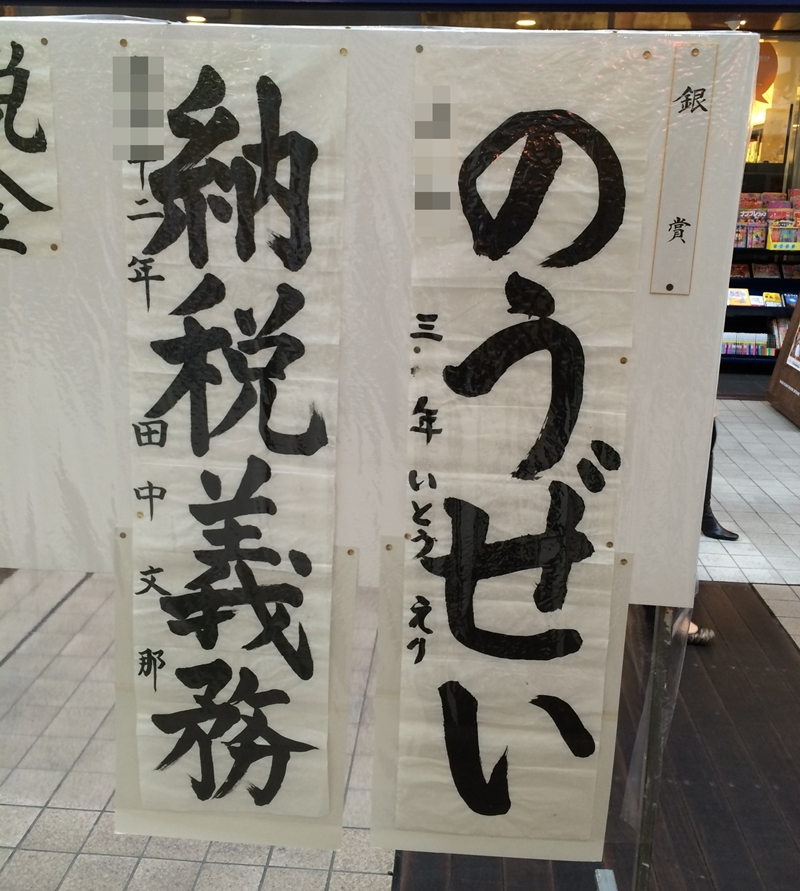 銀賞
のうぜい
三年 いとう えり
納税義務
二年 田中文那
税金